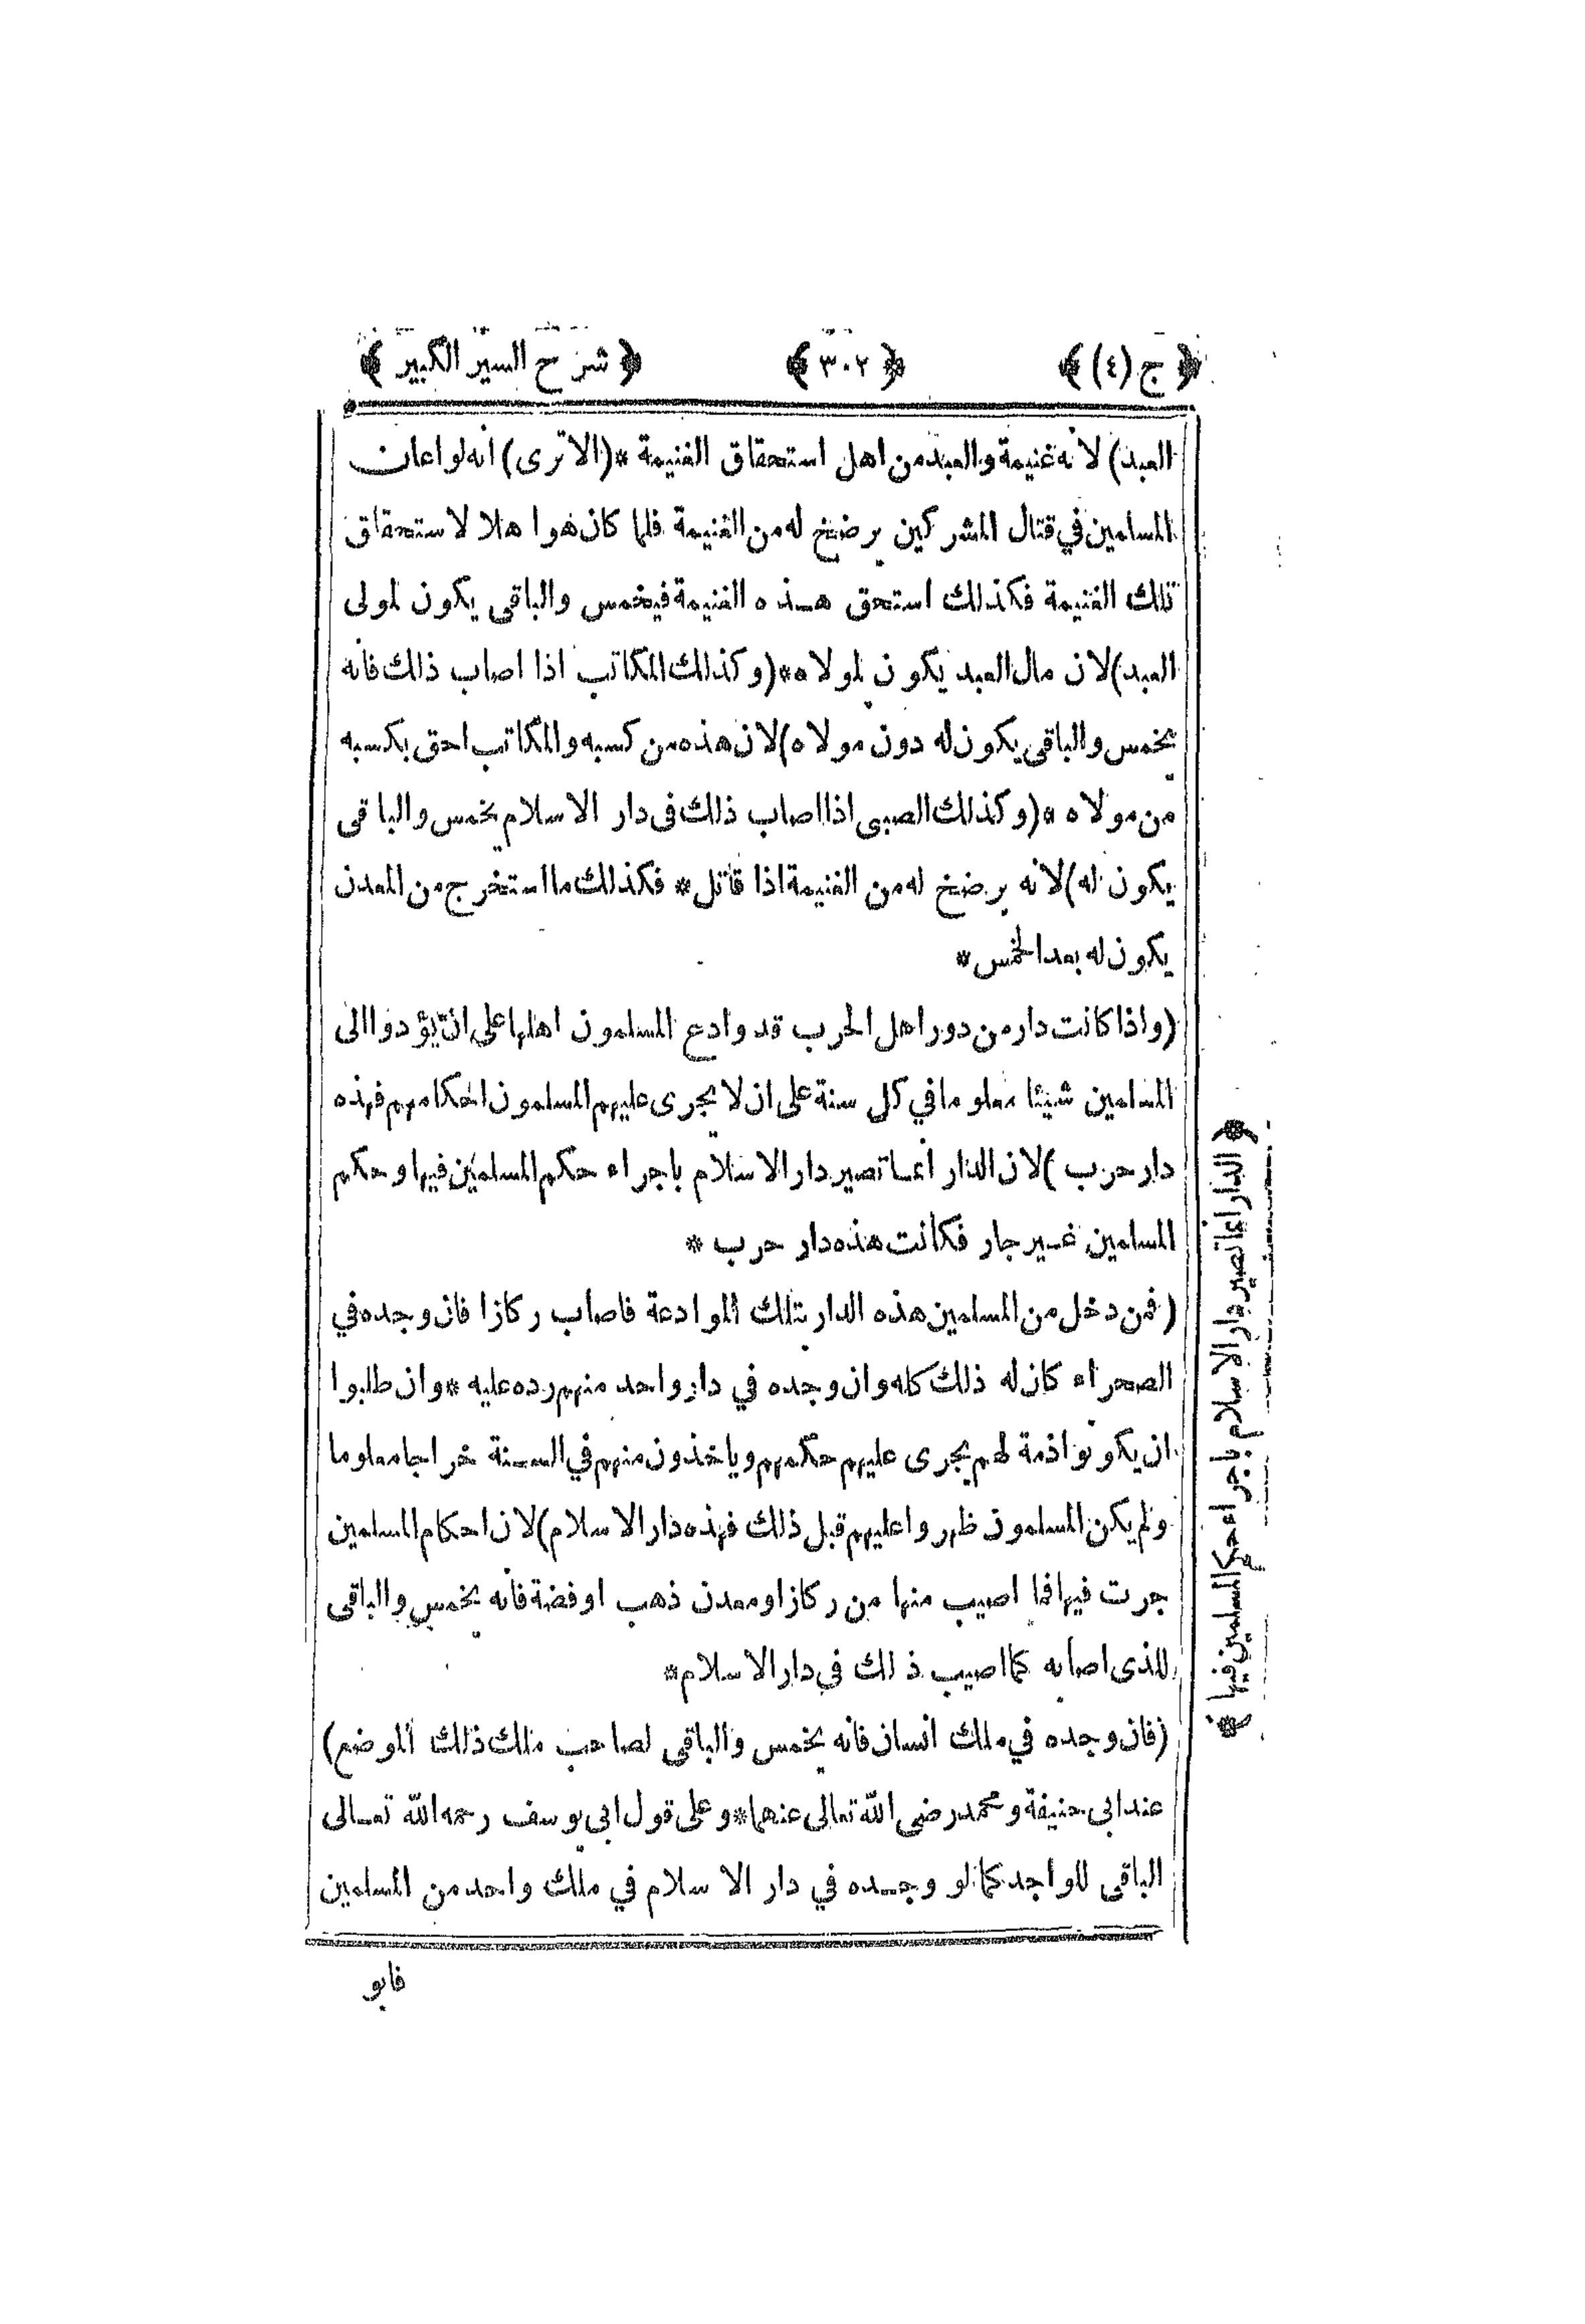 ﴿ ج (٤) ﴾ ﴿ ٣٠٢ ﴾ ﴿ شرح السير الكبير ﴾
العبد) لانه غنيمة والعبد من اهل استحقاق الغنيمة *(الا ترى) انه لو اعان
المسلمين في قتال المشركين يرضخ له من الغنيمة فلما كان هو اهلا لاستحقاق
تلك الغنيمة فكذلك استحق هذه الغنيمة فيخمس والباقى يكون لمولى
العبد) لان مال العبد يكون لمولاه *(وكذلك المكاتب اذا اصاب ذلك فانه
يخمس والباقى يكون له دون مولاه) لان هذه من كسبه والمكاتب احق بكسبه
من مولاه *(وكذلك الصبى اذا اصاب ذلك فى دار الاسلام يخمس والباقى
يكون له) لانه يرضخ له من الغنيمة اذا قاتل * فكذلك ما استخرج من المعدن
يكون له بعد الخمس *
(واذا كانت دار من دور اهل الحرب قد وادع المسلمون اهلها على ان يؤدوا الى
المسلمين شيئا معلوما في كل سنة على ان لا يجرى عليهم المسلمون احكامهم فهذه
دار حرب) لان الدار انما تصير دار الاسلام باجراء حكم المسلمين فيها وحكم
المسلمين غير جار فكانت هذه دار حرب *
(فمن دخل من المسلمين هذه الدار بتلك الموادعة فاصاب ركازا فان وجده في
الصحراء كان له ذلك كله وان وجده في دار واحد منهم رده عليه * وان طلبوا
ان يكونوا ذمة لهم يجرى عليهم حكمهم وياخذون منهم في السنة خراجا معلوما
ولم يكن المسلمون ظهروا عليهم قبل ذلك فهذه دار الاسلام) لان احكام المسلمين
جرت فيها فما اصيب منها من ركاز او معدن ذهب او فضة فانه يخمس والباقى
للذى اصابه كما اصيب ذلك في دار الاسلام *
(فان وجده في ملك انسان فانه يخمس والباقى لصاحب ملك ذلك الموضع)
عند ابى حنيفة ومحمد رضى الله تعالى عنهما * وعلى قول ابى يوسف رحمه الله تعالى
الباقى للواجد كما لو وجده في دار الاسلام في ملك واحد من المسلمين
فابو
﴿ الدار انما تصير دار الاسلام باجراء حكم المسلمين فيها ﴾